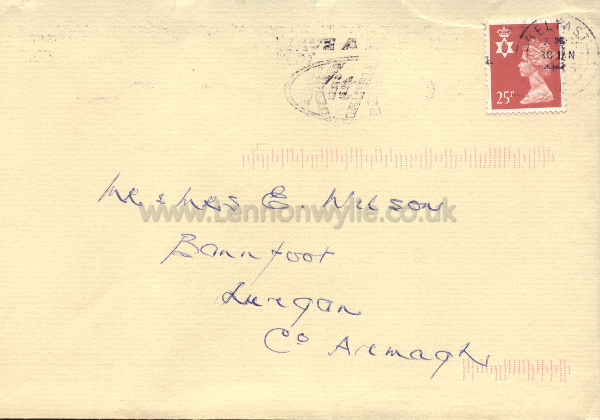 BELFAST
25P
Mr & Mrs E. Wilson
www.Lennonwylie.co.uk
Bannfoot
Lurgan
Co Armagh